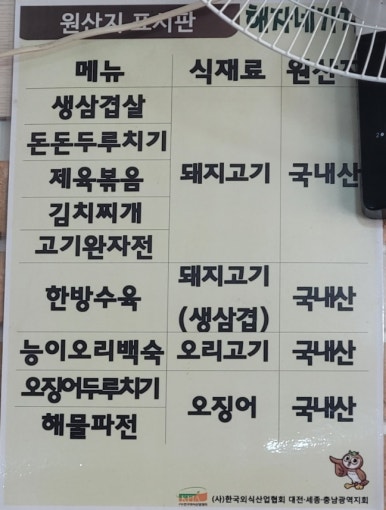 원산지 표시판
메뉴 식재료 원산지
생삼겹살
돈돈두루치기
제육볶음 돼지고기 국내산
김치찌개
고기완자전
한방수육 돼지고기 (생삼겹) 국내산
능이오리백숙 오리고기 국내산
오징어두루치기
해물파전 오징어 국내산
(사)한국외식산업협회 대전·세종·충남광역지회